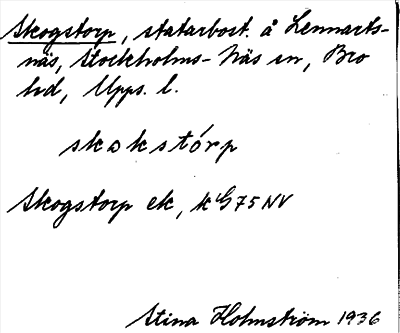 Skogstorp, statarbost. å Lennarts-
näs, Stockholms-Näs sn, Bro
hd, Upps. l.
skokstórp
Skogstorp ek, k G75NV
Stina Holmström 1936